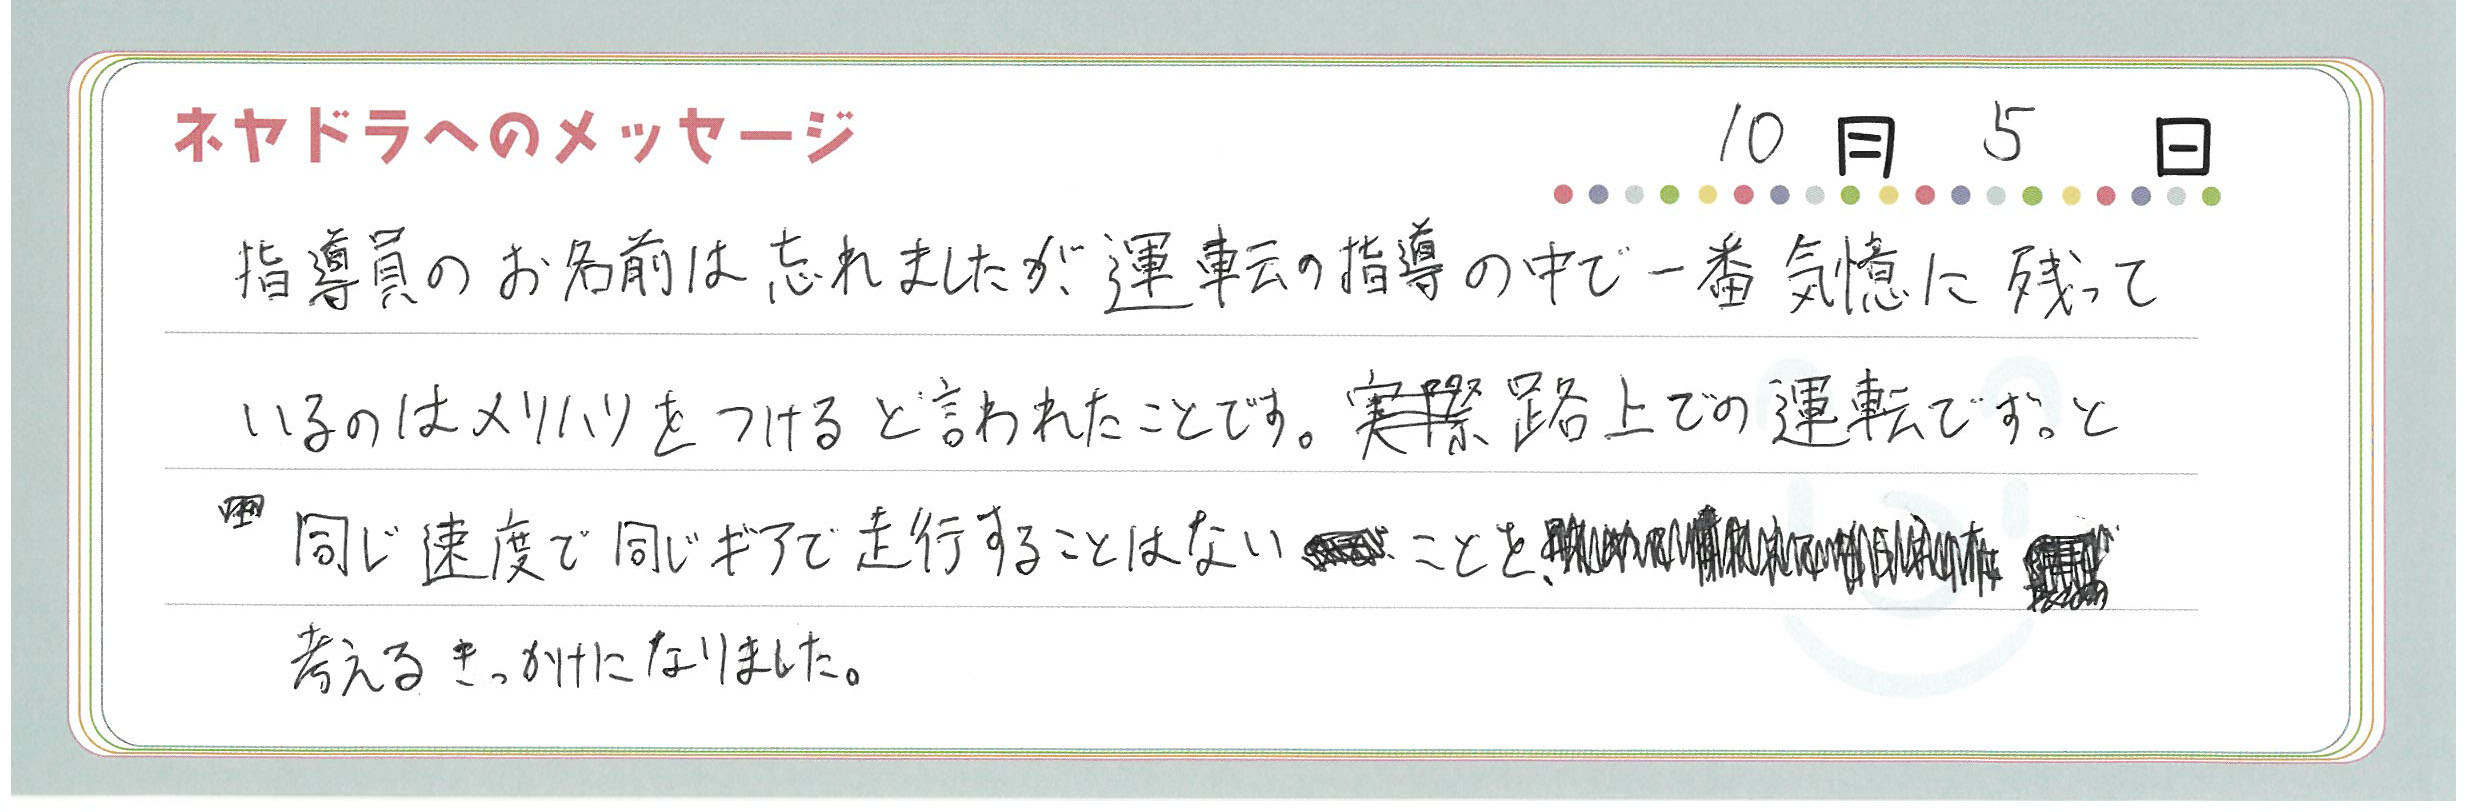 ネヤドラへのメッセージ
10月5日
指導員のお名前は忘れましたが、運転の指導の中で一番気憶に残って
いるのはメリハリをつけると言われたことです。実際路上での運転でずっと
同じ速度で同じギアで走行することはないことを、
考えるきっかけになりました。